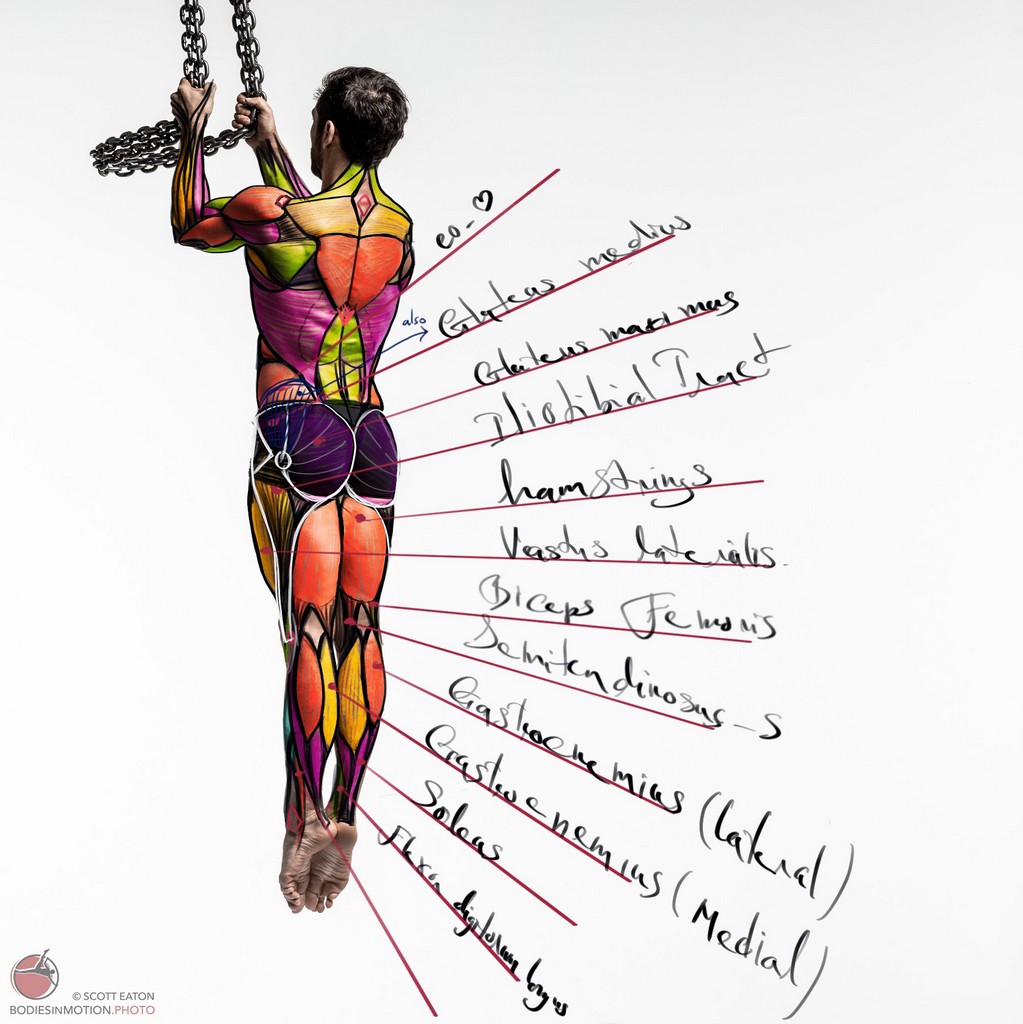 eo-♡
also
Gluteus medius
Gluteus maximus
Iliotibial Tract
hamstrings
Vastus lateralis.
Biceps Femoris
Semitendinosus-S
Gastrocnemius (lateral)
Gastrocnemius (Medial)
Soleus
Flexor digitorum longus
© SCOTT EATON
BODIESINMOTION.PHOTO